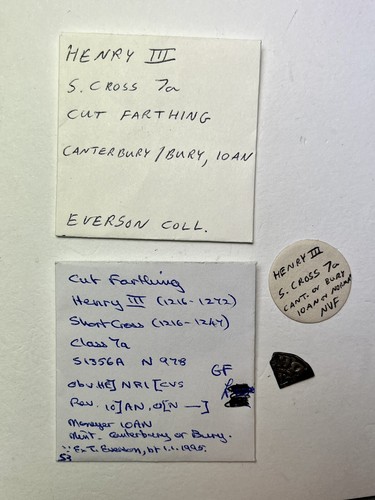 HENRY III
S. CROSS 7a
CUT FARTHING
CANTERBURY/BURY, IOAN
EVERSON COLL.
HENRY III
S. CROSS 7a
CANT. OR BURY
IOAN OR
NVF
Cut Farthing
Henry III (1216-1272)
Short Cross (1216-1247)
Class 7a
S1356A N 978
GF
Obv. HE] NRI [CVS
Rev. IO] AN. O[N —]
Moneyer IOAN
Mint - Canterbury or Bury.
Ex T. Everson, bt 1.1.1995.